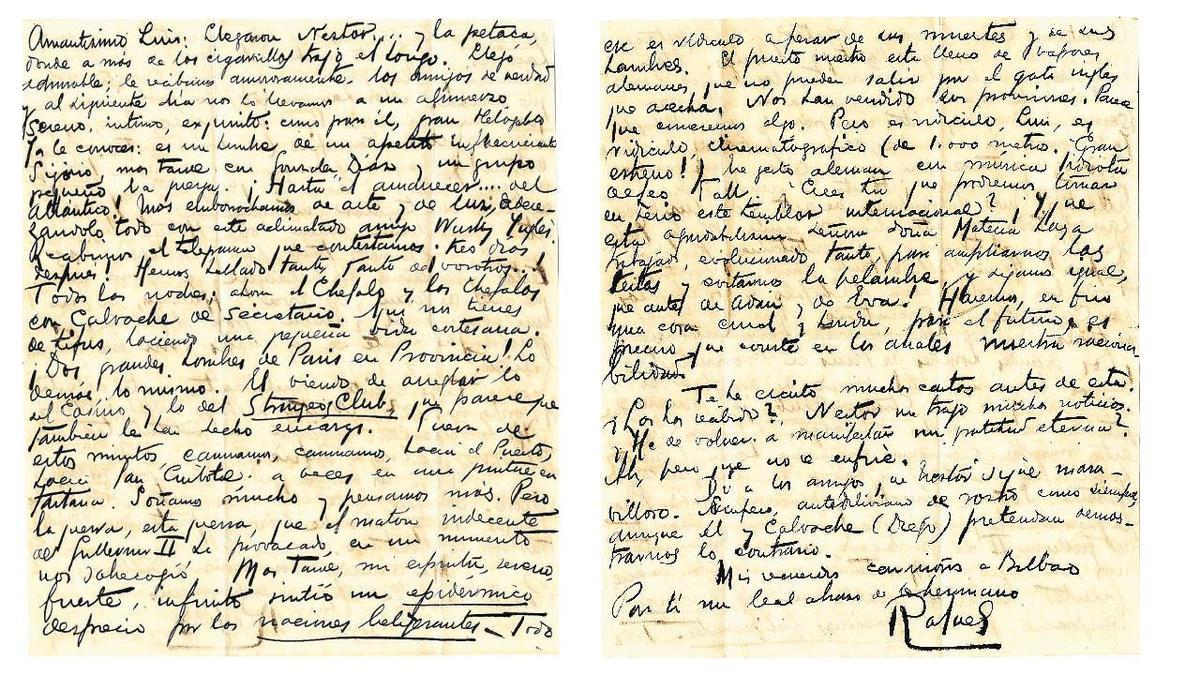 Amantisimo Luis: Llegaron Nestor.... y la petaca,
donde a más de los cigarrillos trajo el Longo. Llegó
admirable: le recibimos amorosamente los amigos de verdad
y al siguiente dia nos lo llevamos a un almuerzo
sereno, intimo, exquisito: como para él, gran Heliogábalo
Ya le conoces: es un hombre de un apetito
mas tarde con Gonzalo Díaz y un grupo
pequeño la juerga. ¡Hasta el anochecer.... del
Atlántico! Nos emborrachamos de arte y de luz,
zandolo todo con este aclimatado amigo Wisky
Recibimos el telegrama que contestamos tres dias
después! Hemos hablado tanto, tanto de vosotros...!
Todas las noches; ahora el Chefalo y los Chefalos
con Calvache de Secretario. Aqui nos tienes
de tifus, haciendo una pequeña vida cortesana.
¡Dos grandes hombres de Paris en Provincia! Lo
demás, lo mismo. El viendo de arreglar lo
del Casino y lo del Club, que parece que
también le han hecho encargo. Fuera de
estos minutos, caminamos, caminamos, hacia el Puerto,
hacia San Cristobal. a veces en una
tartana. Soñamos mucho y pensamos más. Pero
la guerra, esta guerra, que el matón indecente
de Guillermo II ha provocado, en un momento
nos Mas tarde, mi espiritu, sereno,
fuerte, infinito sintió un epidérmico
desprecio por las naciones beligerantes – Todo
ese es ridiculo a pesar de sus muertes y de sus
hambres. El puerto nuestro está lleno de vapores
alemanes, que no pueden salir por el gato ingles
que acecha. Nos han vendido sus provisiones. Para
que comeremos algo. Pero es ridiculo, Luis, es
ridiculo, cinematográfico (de 1.000 metros. Gran
estreno! ) de gesto aleman con música idiota
de Leo Fall. ¿Crees tu que podemos tomar
en serio este temblor internacional? ¡Y que
esta señora doña Materia haya
trabajado, evolucionado tanto, para ampliarnos las
testas y evitarnos la pelambre, y sigamos igual,
que antes de Adan y de Eva! Haremos, en fin
una cosa cruel y linda, para el futuro: es
preciso que conste en los anales nuestra
bilidad.
Te he escrito muchas cartas antes de esta.
¿Las has recibido? Nestor me trajo muchas noticias.
¿He de volver a manifestar mi gratitud eterna?
Ah, pero que no se enfrie.
Di a los amigos que Nestor sigue mara-
villoso. de rostro como siempre,
aunque él y Calvache (Diego) pretendan demos-
trarnos lo contrario.
Mis a Bilbao
Para ti un leal abrazo de hermano
Rafael